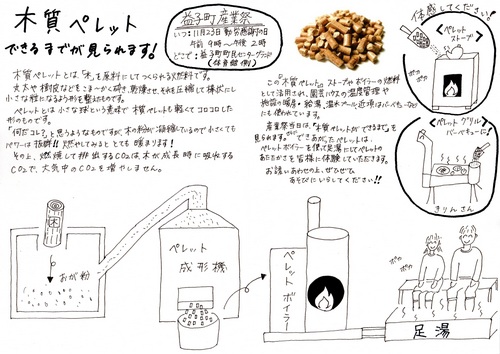 木質ペレット
できるまでが見られます!
益子町産業祭
いつ:11月23日勤労感謝の日
午前9時〜午後2時
どこで:益子町町民センターグランド
(体育館側)
木質ペレットとは「木」を原料にしてつくられる燃料です。
丸太や樹皮などをこまかーく砕き、乾燥させ、それを圧縮して棒状にし
小さな粒になるよう形を整えたものです。
ペレットとは小さな球という意味で木質ペレットも軽くてコロコロした
形のものです。
「何だコレ」と思うようなものですが、木の粉が凝縮しているので小さくても
パワーは抜群!!燃やしてみるととても暖まります!
その上、燃焼して排出するCO2は木が成長時に吸収する
CO2で、大気中のCO2を増やしません。
この木質ペレットは、ストーブやボイラーの燃料
として活用され、園芸ハウスの温度管理や
施設の暖房・給湯、温水プール、近頃はバーベキューなど
にも使われています。
産業祭当日は、「木質ペレットができるまで」を
見られます。できあがったペレットは、
ペレットボイラーを使て足湯にしてペレットの
あたたかさを皆様に体験していただきます。
お誘いあわせの上、ぜひぜひ
あそびにいらしてください!!
体感してください。
<ペレット
ストーブ>
<ペレットグリル
バーベキューに>
きりんさん
木
おが粉
ペレット
成形機
ペレットボイラー
ポカ
ポカ
ポカ
ポカ
足湯